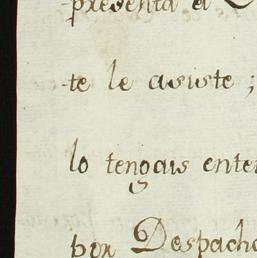 presenta el
te le asiste;
lo tengais enten
por Despacho